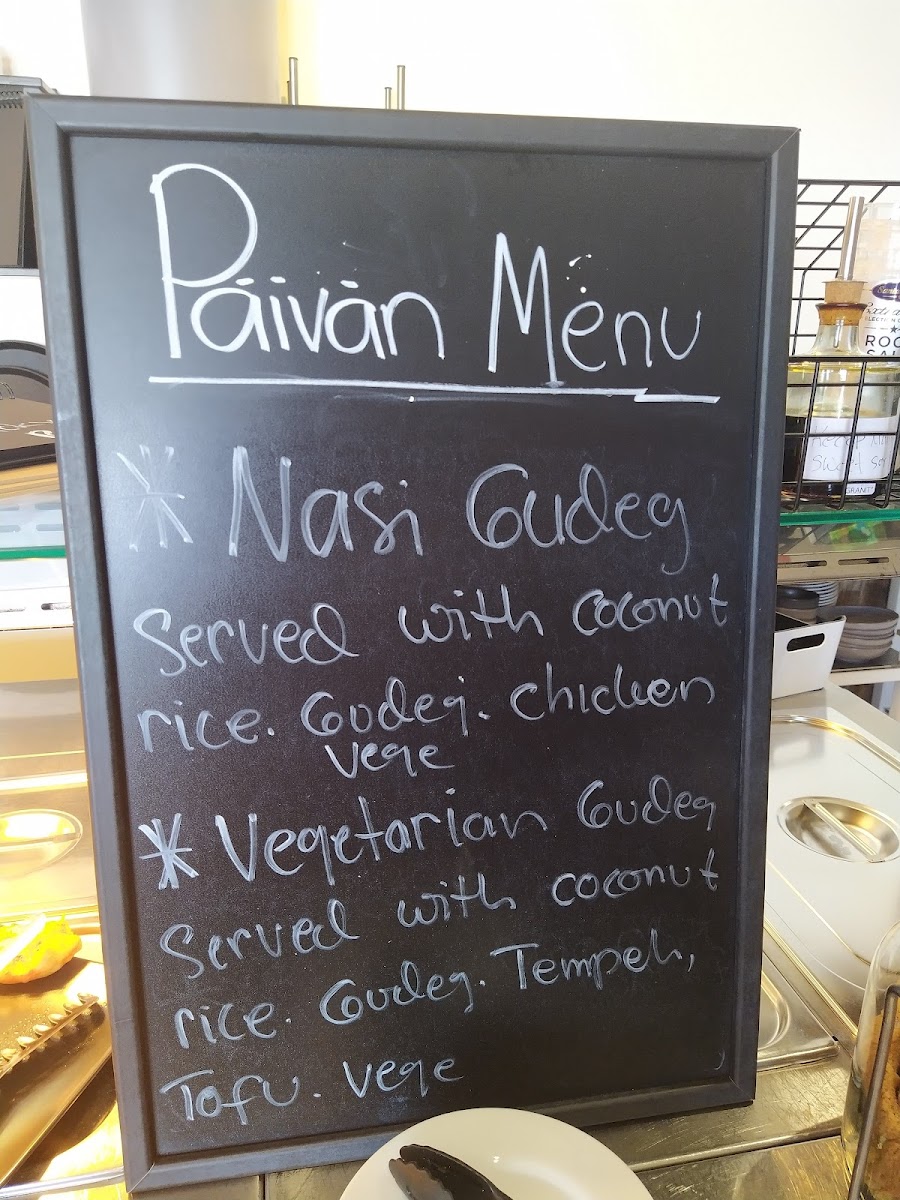 Päivän Menu
* Nasi Gudeg
Served with coconut
rice. Gudeg. chicken
vege
* Vegetarian Gudeg
Served with coconut
rice. Gudeg. Tempeh,
Tofu. vege
ROC